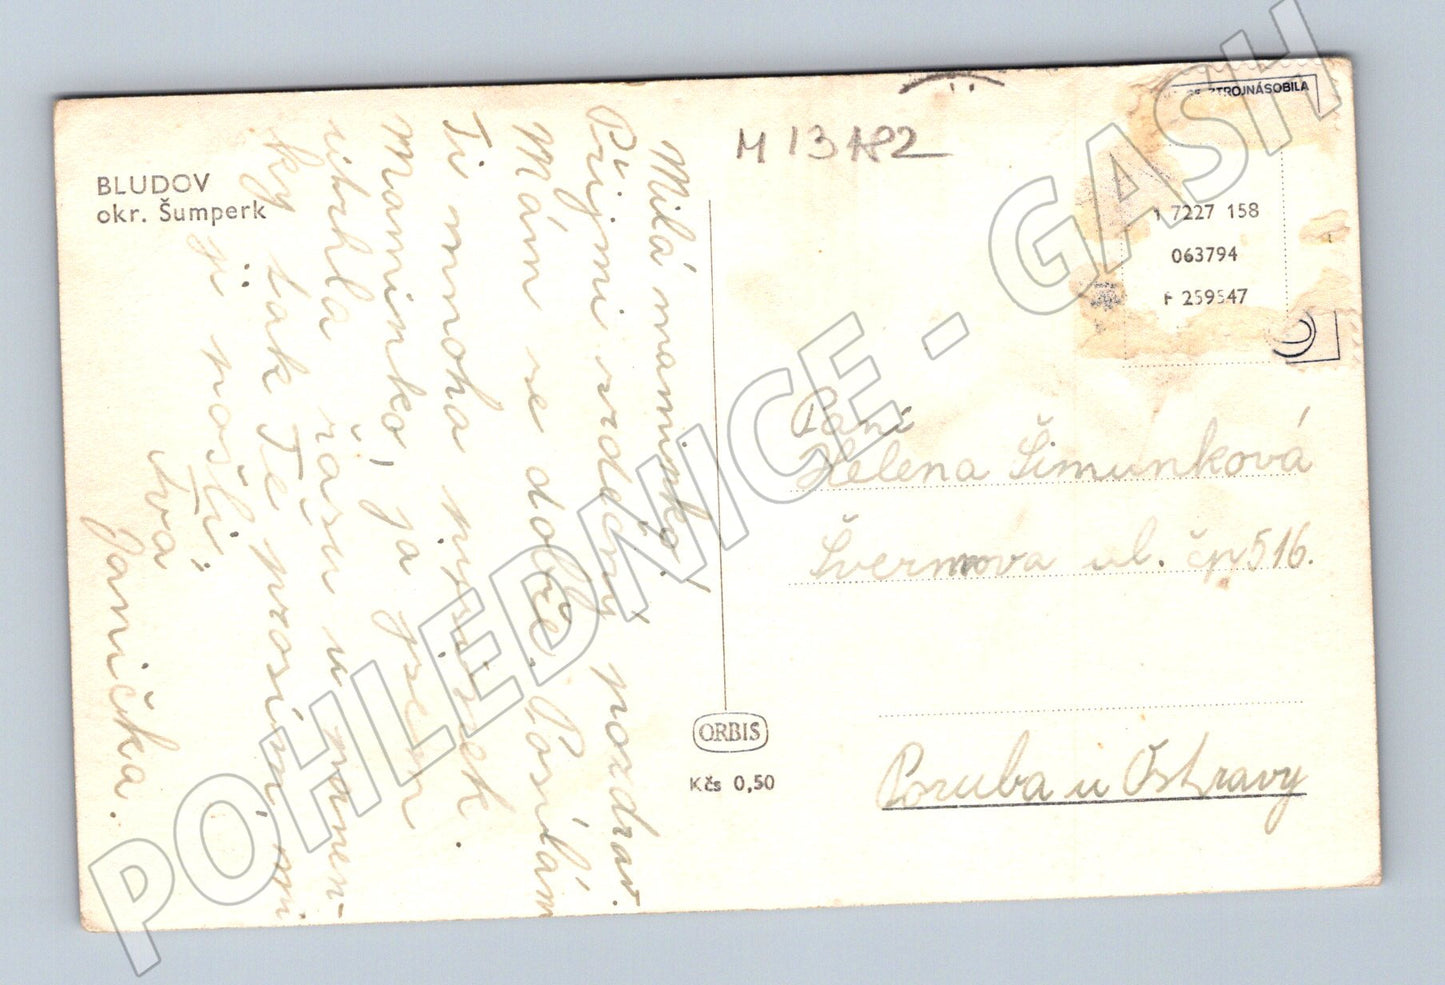 BLUDOV
okr. Šumperk
Milá maminko!
Přijmi srdečný pozdrav.
Mám se dobře. Posílám
Ti mnoho pusinek.
Maminko, já jsem
ztratila řasu u
ky tak Tě prosím,
ji pošli.
Tvá
Janička.
M 13182
STROJNÁSOBILA
7227 158
063794
F 259547
Paní
Helena Šimunková
Švermova ul. čp 516.
Poruba u Ostravy
ORBIS
Kčs 0,50
POHLEDNICE - GASH